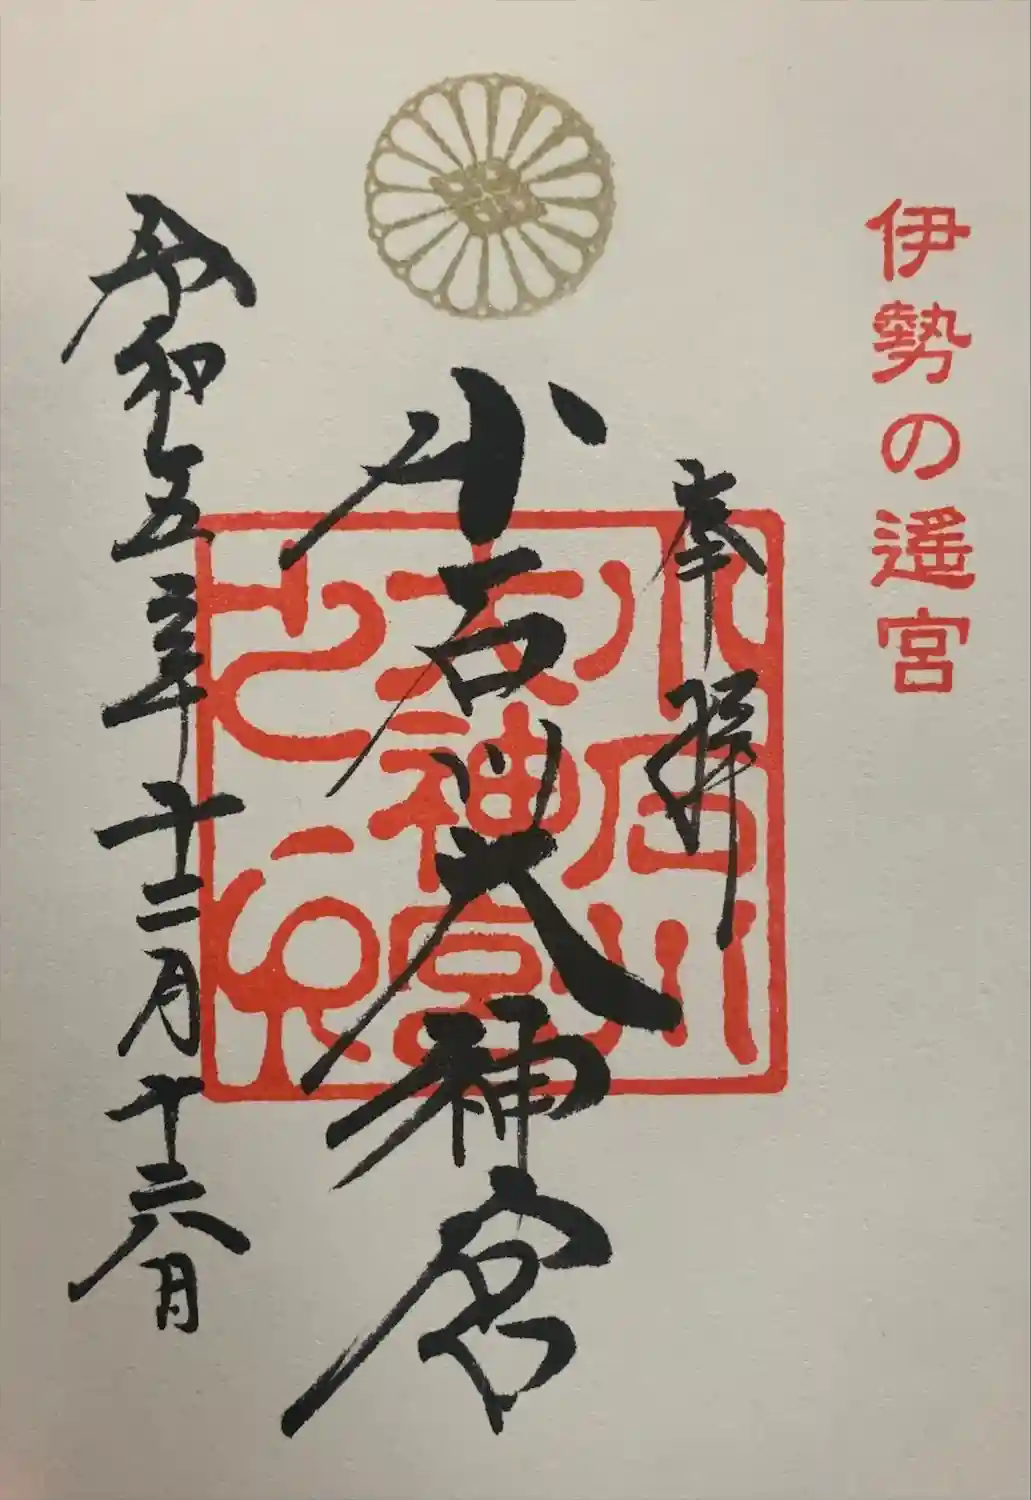 伊勢の遥宮
奉拝
小石川大神宮
小石川
大神宮
之印
令和五年十二月十六日